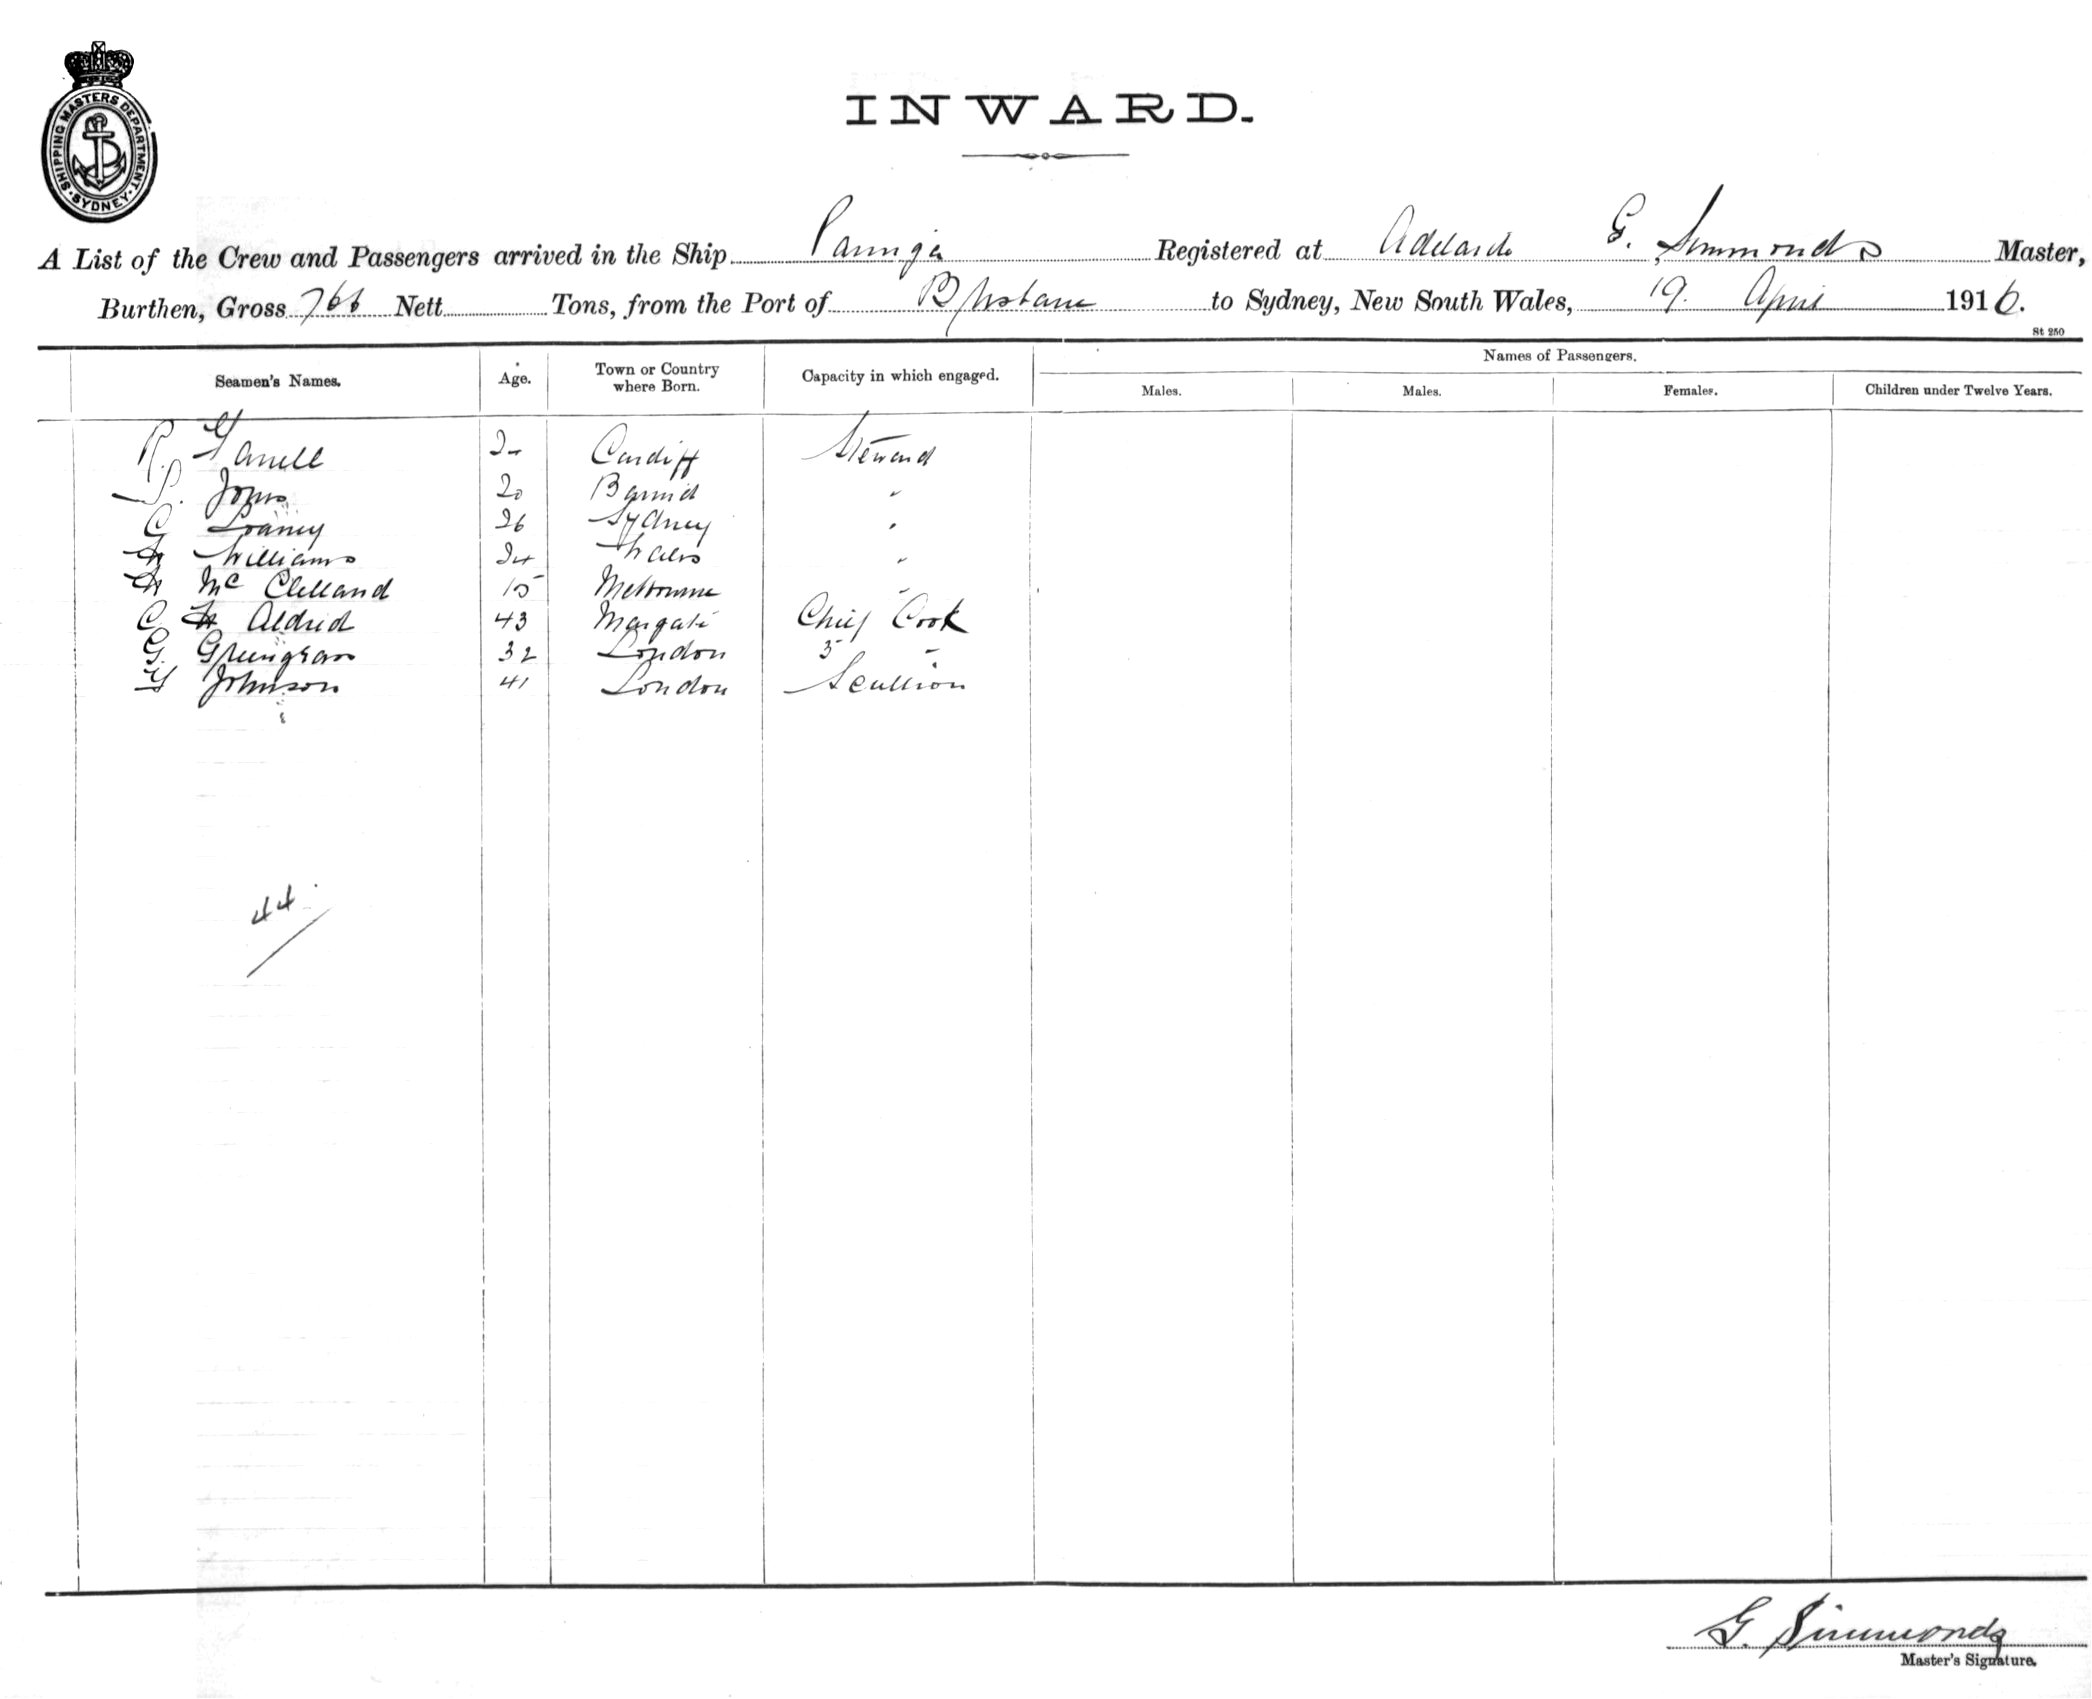 SHIPPING MASTERS DEPARTMENT · SYDNEY ·
INWARD.
A List of the Crew and Passengers arrived in the Ship Paringa Registered at Adelaide G. Simmonds Master,
Burthen, Gross 766 Nett Tons, from the Port of Brisbane to Sydney, New South Wales, 19. April 1916.
St 250
Names of Passengers.
Seamen's Names. Age. Town or Country where Born. Capacity in which engaged. Males. Males. Females. Children under Twelve Years.
R. Cardiff Steward
Johns 20 "
C 26 Sydney "
Williams 24 Wales "
Mc Clelland 15 Melbourne "
C H Aldred 43 Margate Chief Cook
G. 32 London 3 "
Johnson 41 London Scullion
44
G. Simmonds
Master's Signature.